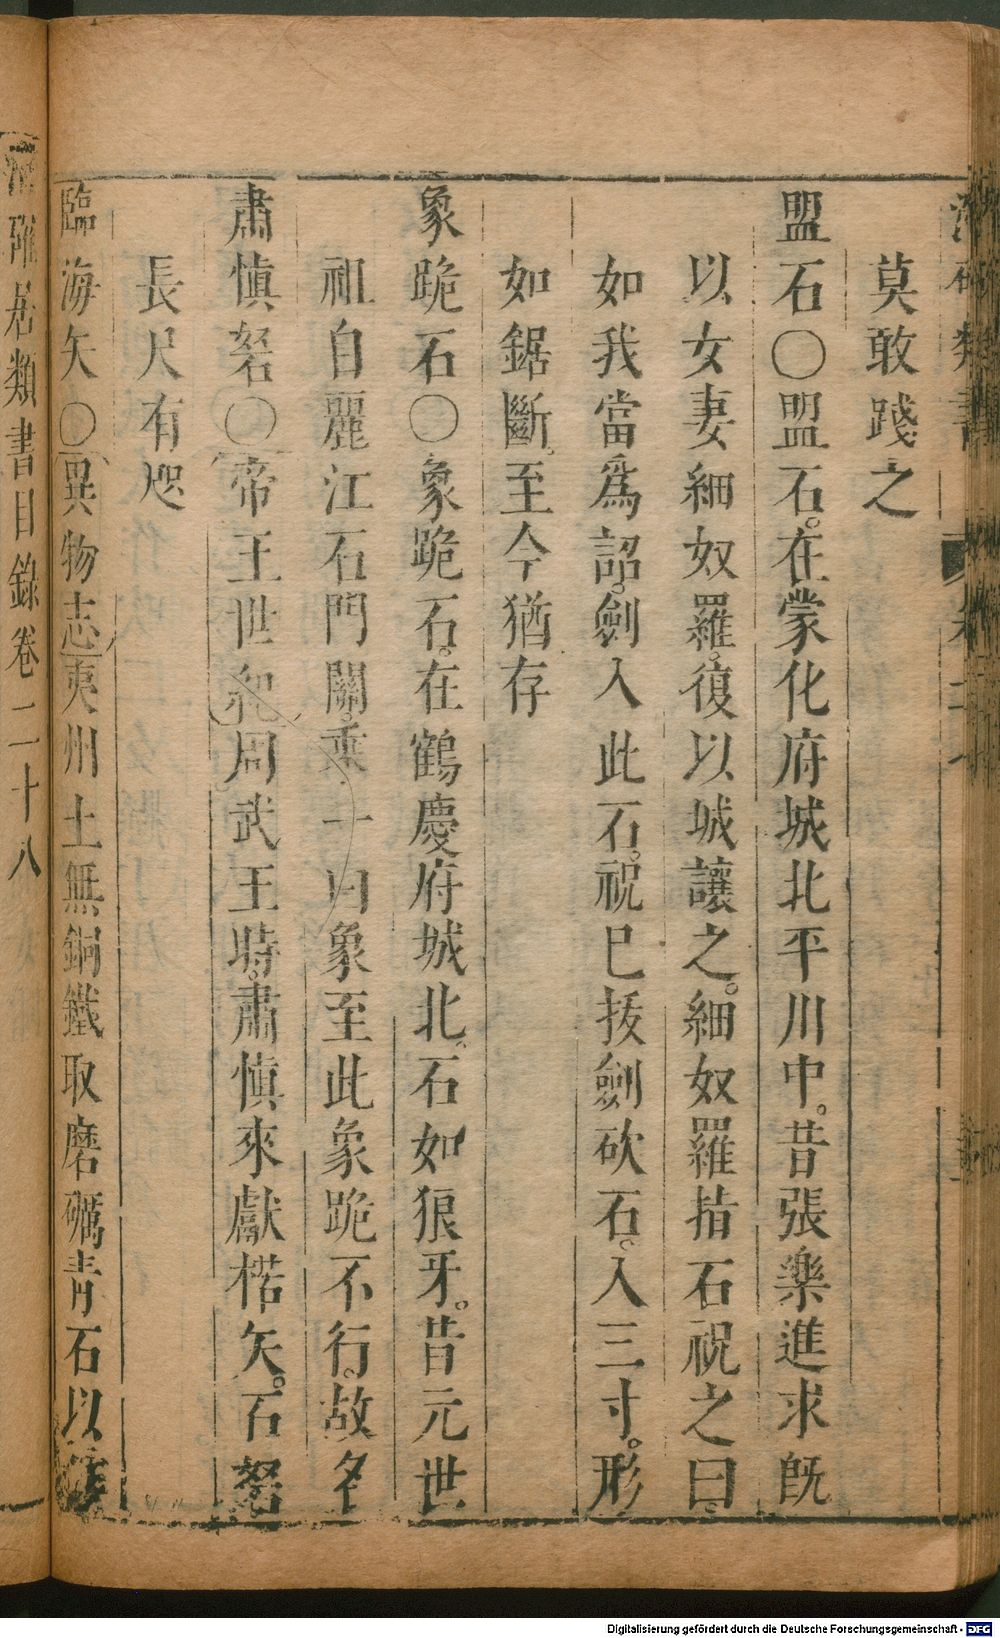 莫敢踐之
盟石〇盟石。在蒙化府城北平川中。昔張樂進求旣
以女妻細奴羅。復以城讓之。細奴羅指石祝之曰。
如我當爲詔。劍入此石。祝巳拔劍砍石。入三寸。形
如鋸斷。至今猶存
象跪石〇象跪石。在鶴慶府城北。石如狼牙。昔元世
祖自麗江石門關。乘一白象至此象跪不行。故名
肅愼砮〇帝王世紀周武王時。肅愼來獻楛矢。石砮
長尺有咫
臨海矢〇異物志夷州土無銅鐵取磨礪青石以
潛確居類書目錄卷二十八
Digitalisierung gefördert durch die Deutsche Forschungsgemeinschaft - DFG